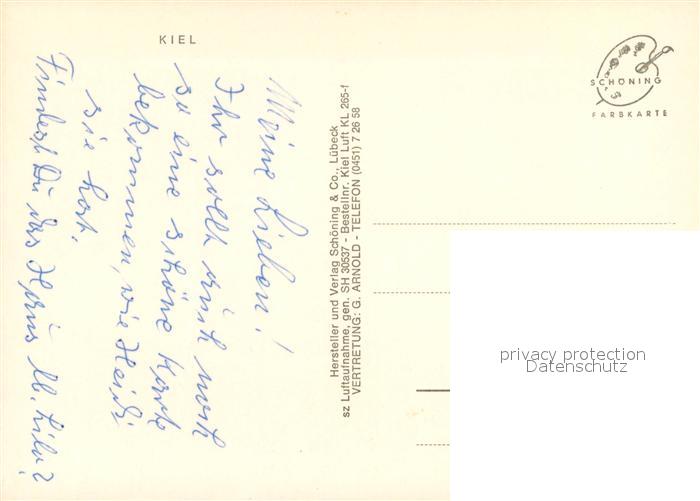 KIEL
Meine Lieben!
Ihr sollt auch noch
so eine schöne Karte
bekommen, wie Heidi
sie hat.
Findest Du das Haus lb. Lilo?
Hersteller und Verlag Schöning & Co., Lübeck
sz Luftaufnahme, gen. SH 30537 - Bestellnr. Kiel Luft KL 265-f
VERTRETUNG: G. ARNOLD - TELEFON (0451) 7 26 58
SCHÖNING
FARBKARTE
privacy protection
Datenschutz